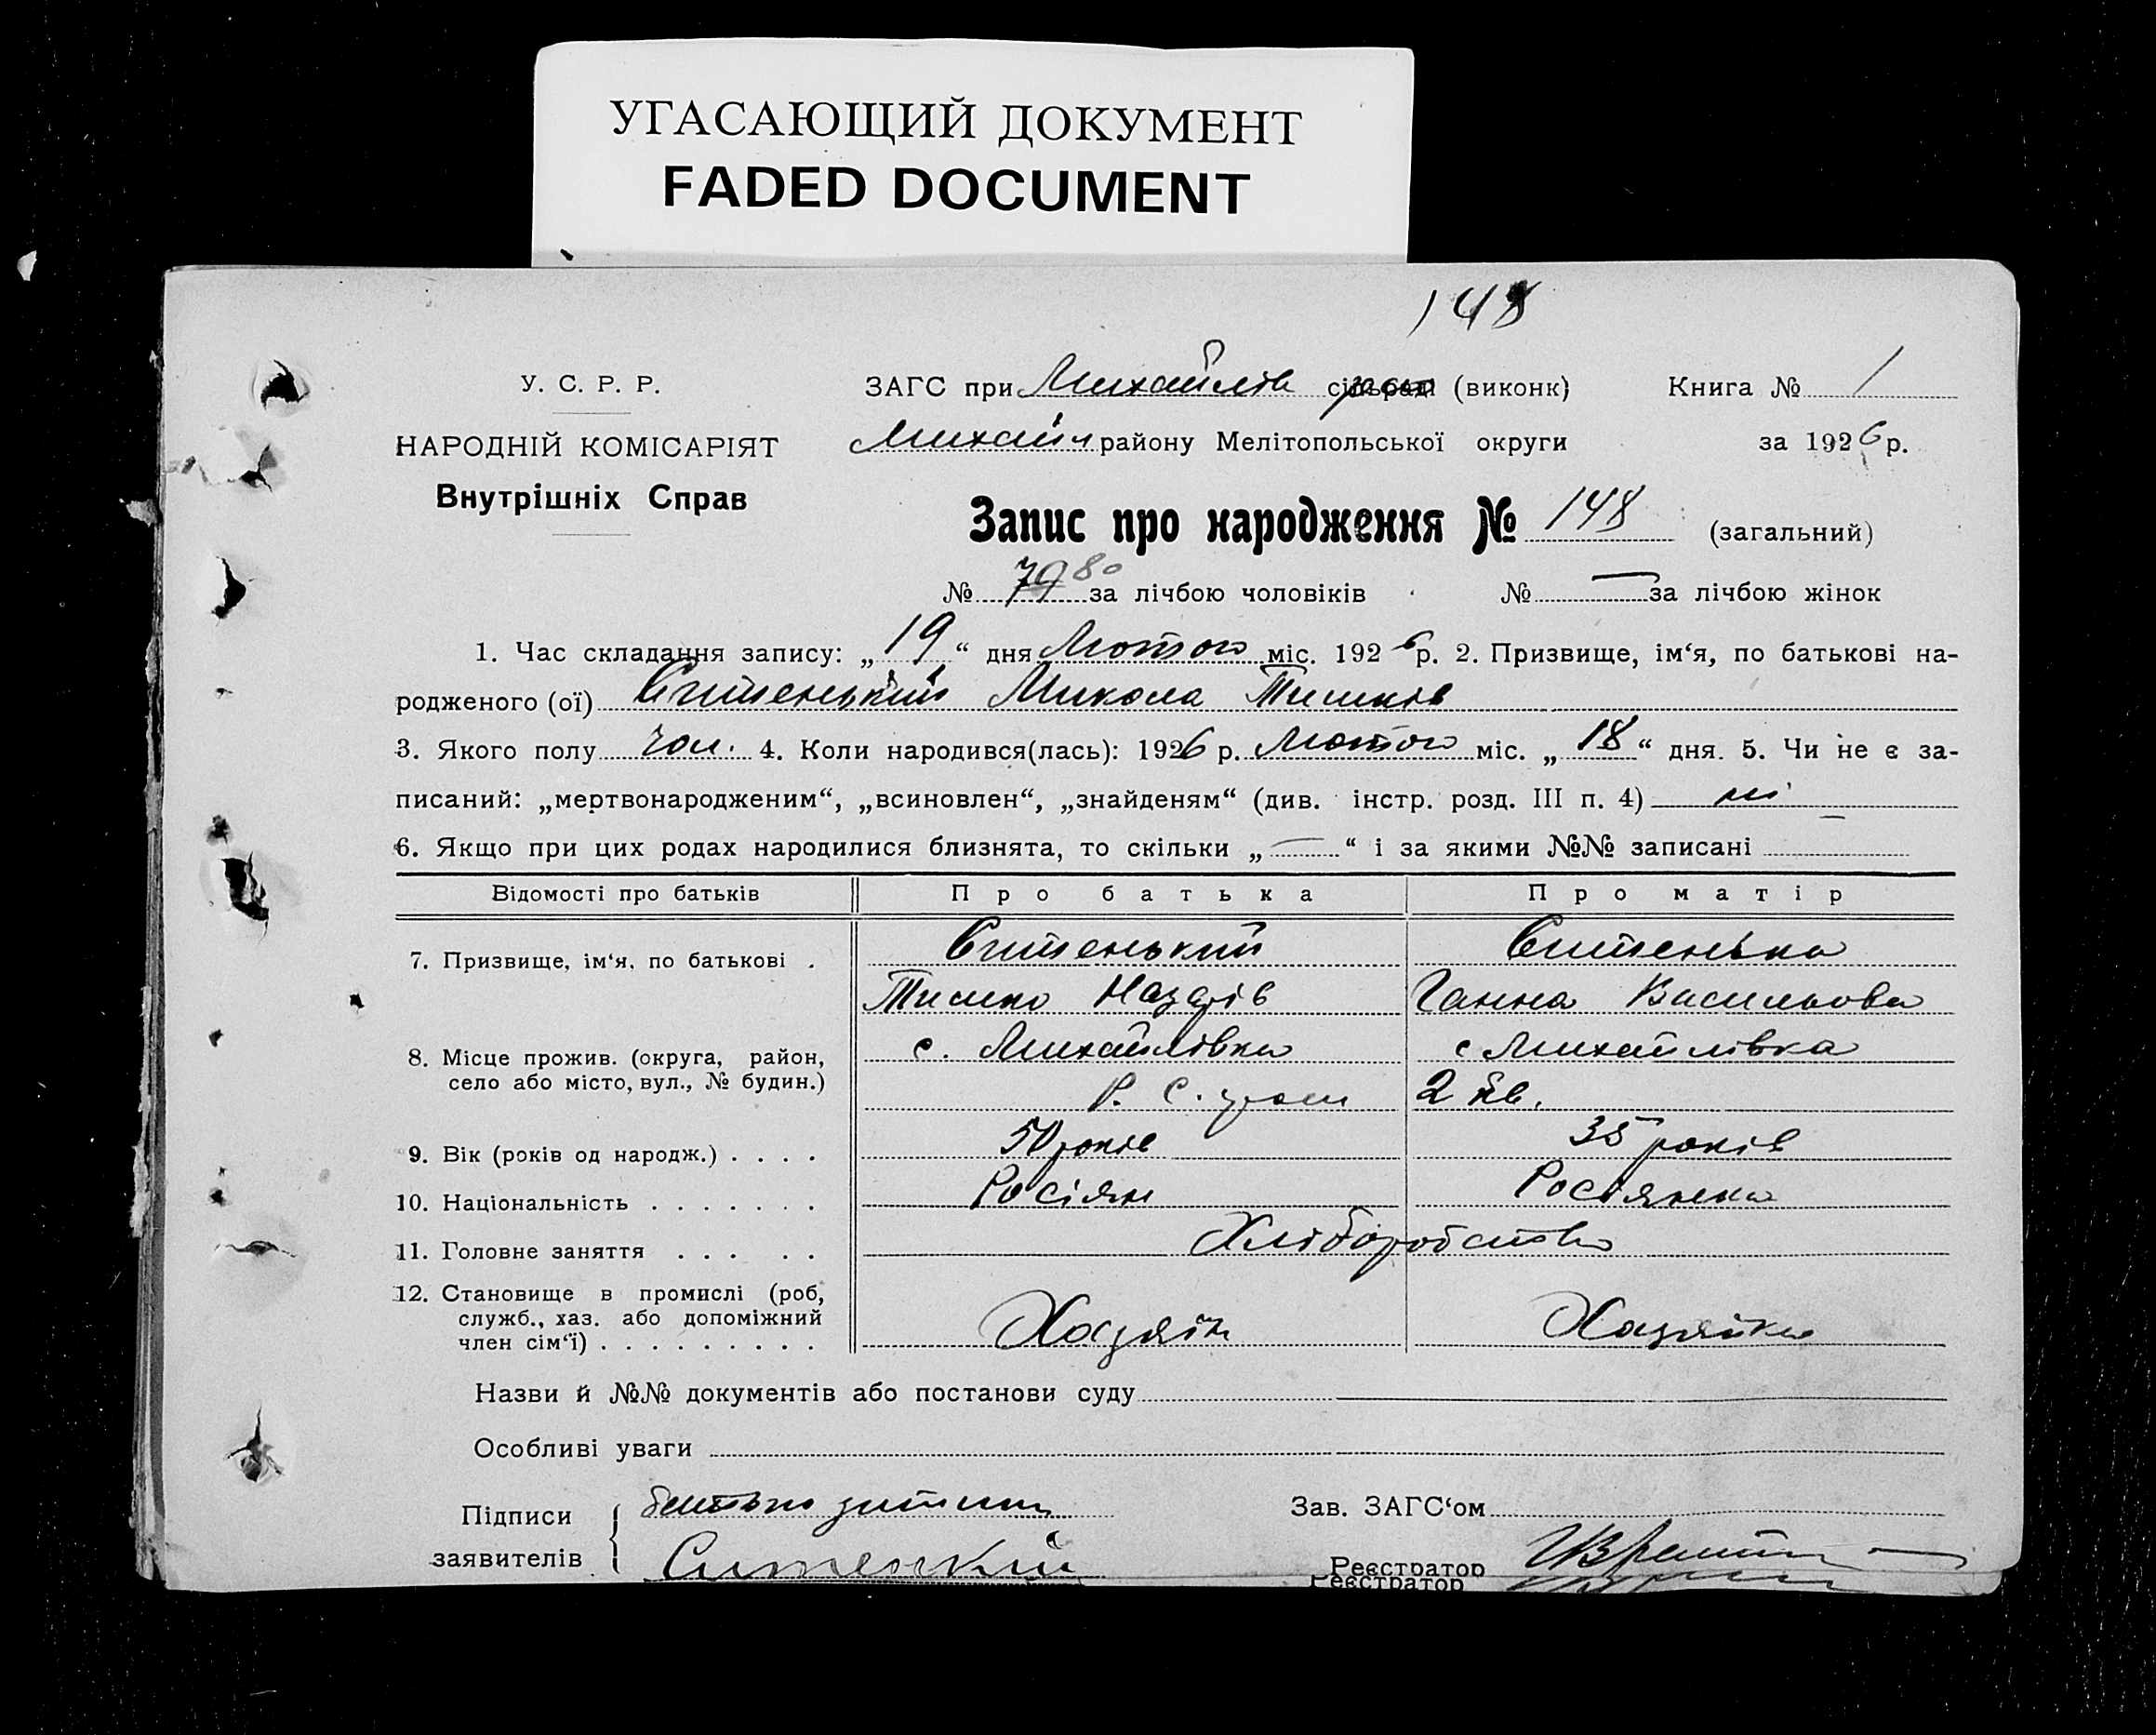 УГАСАЮЩИЙ ДОКУМЕНТ
FADED DOCUMENT
148
У. С. Р. Р.
ЗАГС при Михайлів сільраді (виконк) Книга № 1
НАРОДНІЙ КОМІСАРІЯТ
Михайл району Мелітопольської округи за 1926 р.
Внутрішніх Справ
Запис про народження № 148 (загальний)
№ 79 80 за лічбою чоловіків № — за лічбою жінок
1. Час складання запису: „19“ дня Лютого міс. 1926 р. 2. Призвище, ім‘я, по батькові на-
родженого (ої) Ситенький Микола Тишків
3. Якого полу чол. 4. Коли народився(лась): 1926 р. Лютого міс. „18“ дня. 5. Чи не є за-
писаний: „мертвонародженим“, „всиновлен“, „знайденям“ (див. інстр. розд. III п. 4) ні
6. Якщо при цих родах народилися близнята, то скільки „—“ і за якими №№ записані —
Відомості про батьків Про батька Про матір
7. Призвище, ім‘я, по батькові . Ситенький Ситенька
Тишко Назарів Ганна Васильова
8. Місце прожив. (округа, район, с. Михайлівка с Михайлівка
село або місто, вул., № будин.) Р. С. 2 кв.
9. Вік (років од народж.) . . . . 50 років 35 років
10. Національність . . . . . . . Росіян Росіянка
11. Головне заняття . . . . . Хліборобство
12. Становище в промислі (роб,
служб., хаз. або допоміжний
член сім‘ї) . . . . . . . . . Хазяїн Хазяйка
Назви й №№ документів або постанови суду
Особливі уваги
Підписи батько дитини Зав. ЗАГС‘ом
заявителів Ситенкий Реєстратор
Реєстратор